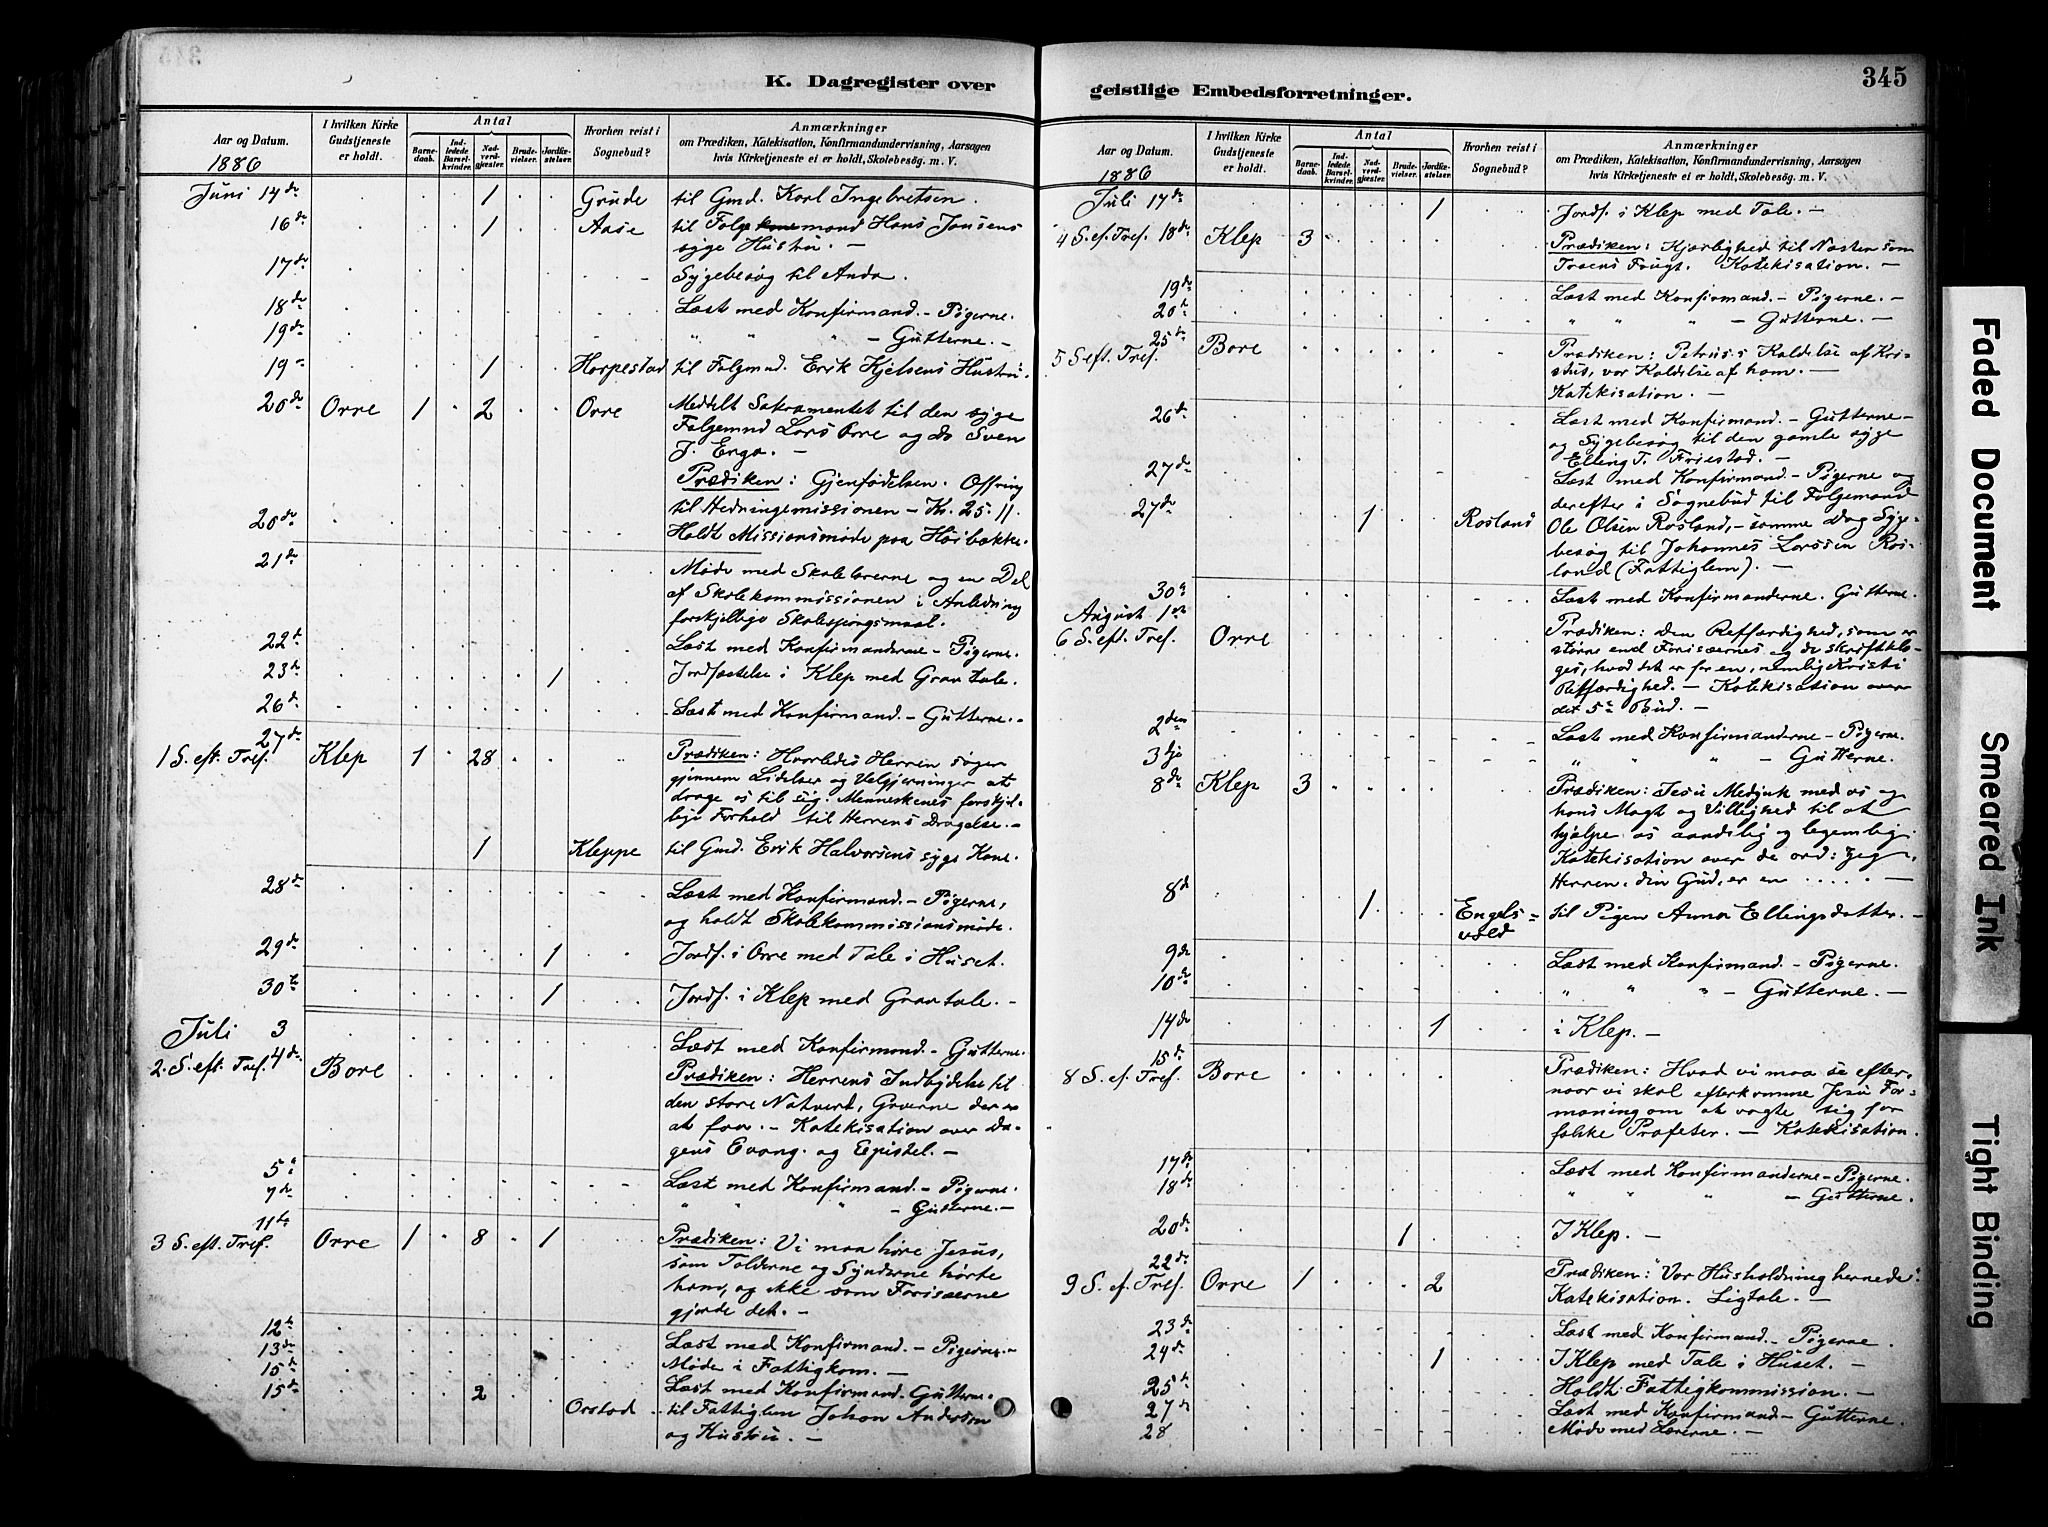 K. Dagregister over
Aar og Datum.
1886
I hvilken Kirke Gudstjeneste er holdt.
Antal
Barnedaab.
Indledede Barselkvinder.
Nadverdgjæster.
Brudevielser.
Jordfæstelser.
Hvorhen reist i Sognebud?
Anmærkninger
om Prædiken, Katekisation, Konfirmandundervisning, Aarsagen
hvis Kirketjeneste ei er holdt, Skolebesög. m. V.
Juni 14de 1 Grude til Gmd. Karl Ingebretsen.
16de 1 Aase til Folgemand Hans Jansens
syge Hustru. —
17de Sygebesøg til Anda.
18de Læst med Konfirmand. – Pigerne.
19de " " " – Gutterne. –
19de 1 Horpestad til Folgmnd. Erik Kjelsens Hustru.
20de Orre 1 2 Orre Meddelt Sakramentet til den syge
Folgemnd Lars Orre og do Sven
J. Erga. —
Prædiken: Gjenfødelsen. Offring
til Hedningemissionen – Kr. 25.11.
20de Holdt Missionsmøde paa Høibakke.
21de Møde med Skolelærerne og en Del
af Skolekommissionen i Anledning
forskjellige Skolespørgsmaal.
22de Læst med Konfirmanderne – Pigerne.
23de 1 Jordfæstelse i Klep med Grav tale.
26de Læst med Konfirmand. – Gutterne. –
27de
1 S. eft. Tref. Klep 1 28 Prædiken: Hvorledes Herren søger
gjennem Lidelser og Velgjerninger at
drage os til sig. Menneskenes forskjel-
lige Forhold til Herrens Dragelse. –
1 Kleppe til Gmd. Erik Halvorsens syge Kone.
28de Læst med Konfirmand. – Pigerne,
og holdt Skolekommissionsmøde.
29de 1 Jordf. i Orre med Tale i Huset.
30te 1 Jordf. i Klep med Grav tale. –
Juli 3 Læst med Konfirmand. – Gutterne.
2. S. eft. Tref. 4de Bore Prædiken: Herrens Indbydelse til
den store Natverd, Gaverne der er
at faa. – Katekisation over Da-
gens Evang. og Epistel. –
5te Læst med Konfirmand. – Pigerne.
7de " " " – Gutterne. –
11te
3 S. eft. Tref. Orre 1 8 1 Prædiken: Vi maa høre Jesus,
som Tolderne og Synderne hørte
ham, og ikke som Farisæerne
gjorde det. –
12te Læst med Konfirmand. – Pigerne. –
13de Møde i Fattigkom. –
15de Læst med Konfirmand. Gutterne.
15de 2 Orstad til Fattiglem Johan Andersen
og Hustru. –
geistlige Embedsforretninger.
345
Aar og Datum.
1886
I hvilken Kirke Gudstjeneste er holdt.
Antal
Barnedaab.
Indledede Barselkvinder.
Nadverdgjæster.
Brudevielser.
Jordfæstelser.
Hvorhen reist i Sognebud?
Anmærkninger
om Prædiken, Katekisation, Konfirmandundervisning, Aarsagen
hvis Kirketjeneste ei er holdt, Skolebesög. m. V.
Juli 17de 1 Jordf. i Klep med Tale. –
4 S. ef. Tref. 18de Klep 3 Prædiken: Kjærlighed til Næsten som
Troens Frugt. Katekisation. –
19de Læst med Konfirmand. – Pigerne. –
20de " " " – Gutterne. –
25de
5 S eft. Tref. Bore Prædiken: Petrus's Kaldelse af Kri-
stus, vor Kaldelse af ham. –
Katekisation. –
26de Læst med Konfirmand. – Gutterne –
og Sygebesøg til den gamle syge
Elling T. Friestad. –
27de Læst med Konfirmand. – Pigerne og
27de 1 Rosland derefter i Sognebud til Folgemand
Ole Olsen Rosland, – samme Dag Syge-
besøg til Johannes Larssen Ros-
land (Fattiglem). –
30te Læst med Konfirmanderne. Gutterne.
August 1ste
6 S. eft. Tref. Orre Prædiken: Den Retfærdighed, som er
større end Farisæernes og de skriftklo-
ges, hvad det er for en, nemlig Kristi
Retfærdighed. – Katekisation over
det 5te Bud. –
2den Læst med Konfirmanderne – Pigerne.
3dje " " " – Gutterne.
8de Klep 3 Prædiken: Jesu Medynk med os og
hans Magt og Villighed til at
hjælpe os aandelig og legemlig.
Katekisation over de ord: Jeg,
Herren, din Gud, er en ..... –
8de 1 Engels-
vold til Pigen Anna Ellingsdatter. –
9de Læst med Konfirmand. – Pigerne.
10de " " " – Gutterne. –
14de 1 i Klep. –
15de
8 S. ef. Tref. Bore Prædiken: Hvad vi maa se efter,
naar vi skal efterkomme Jesu For-
maning om at vogte sig for
falske Profeter. – Katekisation.
17de Læst med Konfirmanderne – Pigerne.
18de " " " – Gutterne.
20de 1 I Klep. –
22de
9 S. ef. Tref. Orre 1 2 Prædiken: "Vor Husholdning hernede".
Katekisation. Ligtale. –
23de Læst med Konfirmand. – Pigerne.
24de 1 I Klep med Tale i Huset. –
25de Holdt Fattigkommission. –
27de Læst med Konfirmand – Gutterne.
28 Møde med Lærerne. –
Faded Document
Smeared Ink
Tight Binding